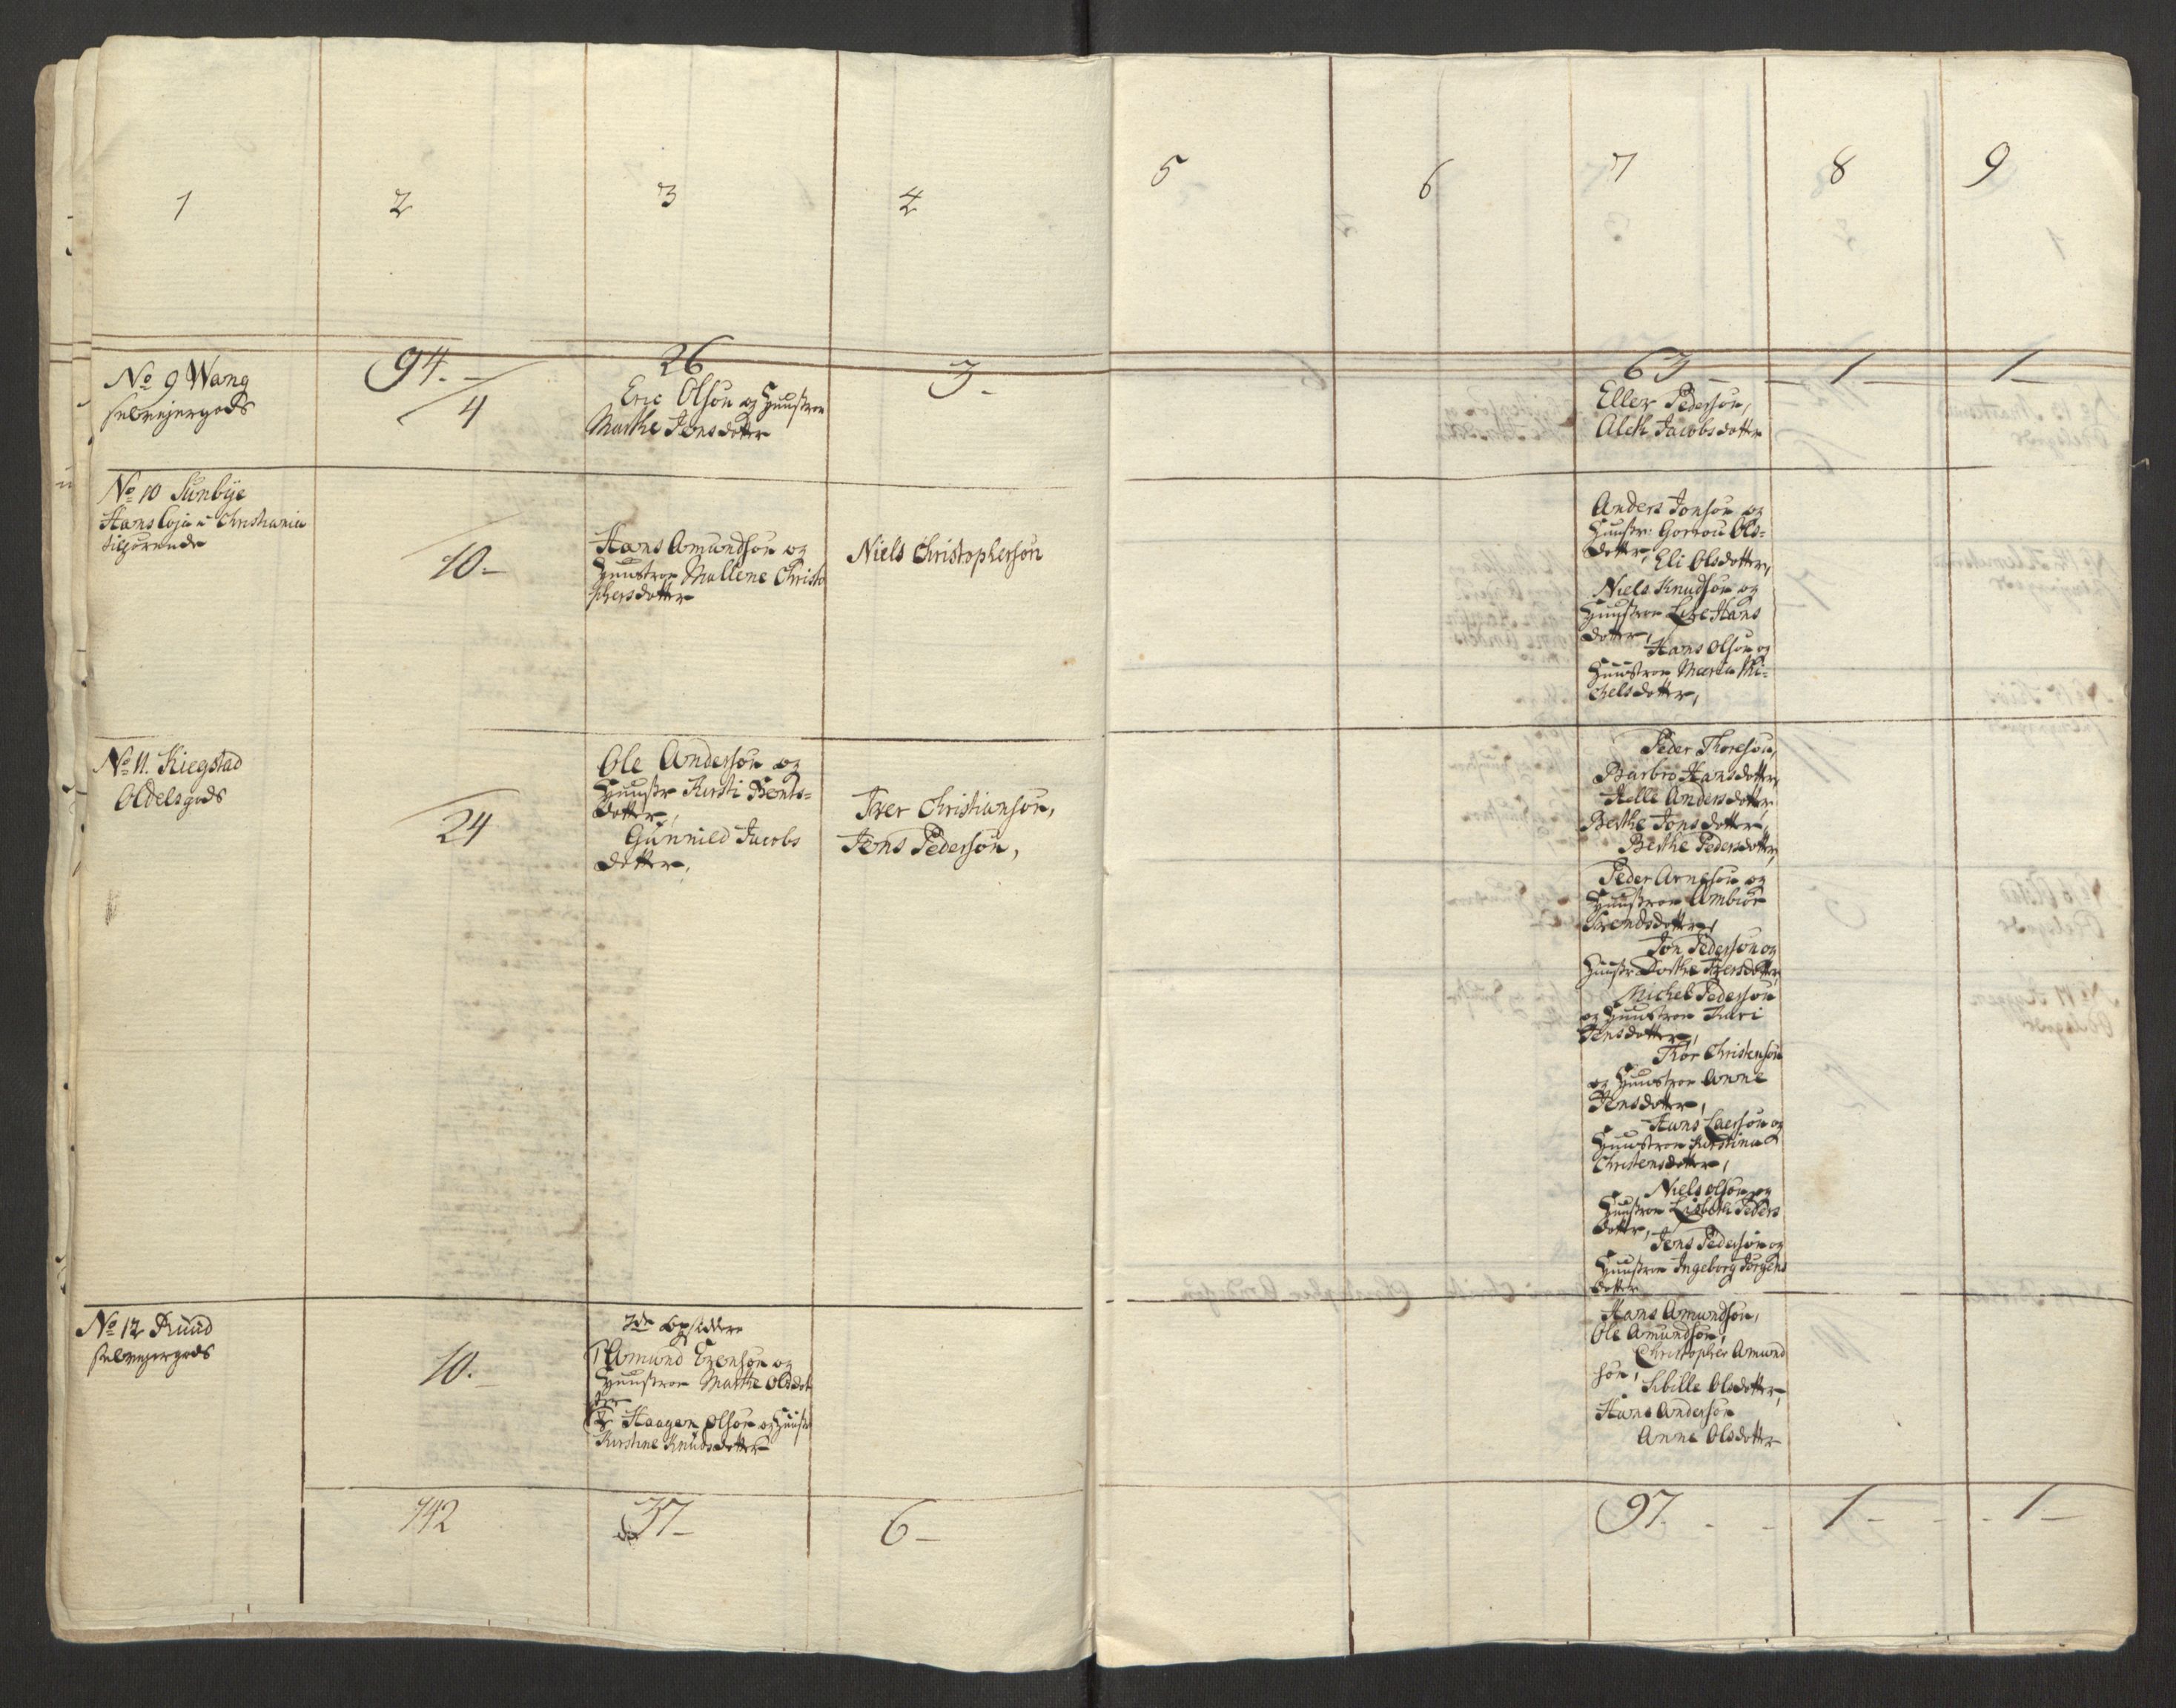 1
2
3
4
5
6
7
8
9
94.-
26
3-
63 -
- 1 -
1 -
No 9 Wang
selvejergods
4
Eric Olsøn og Huustroe
Marthe Jensdotter
Eller Pedersøn,
Aleth Jacobsdotter
No 10 Sunbÿe
i Christiania
tilhørende
10.-
Hans Amundsøn og
Huustroe Mallene Christo
phersdotter
Niels Christophersøn
Anders Jonsøn og
Huustr: Gorrou Ols=
dotter, Eli Olsdotter,
Niels Knudsøn og
Huustroe Lise Hans
dotter,
Hans Olsøn og
Huustroe Maria Mi=
chelsdotter,
No 11. Kiegstad
Odelsgods
24
Ole Andersøn og
Huustr Kirsti Bents=
dotter,
Gunnild Jacobs
dotter,
Iver Christiansøn,
Jens Pedersøn,
Peder Thoresøn,
Barbro Hansdotter,
Helle Andersdotter
Berthe Jonsdotter,
Berthe Pedersdotter,
Peder Arnesøn og
Huustroe Ambiør
Svendsdotter,
Jon Pedersøn og
Huustr Dorthe Iversdotter,
Michel Pedersøn
og Huustroe Kari
Jensdotter,
Thor Christensøn
og Huustroe Anne
Jensdotter,
Hans Larsøn og
Huustroe Kirstina
Christensdotter,
Niels Olsøn og
Huustroe Lisbeth Peders
dotter,
Jens Pedersøn og
Huustroe Ingeborg Jørgens
dotter
No 12 Ruud
selvejergods
10.-
2de Opsiddere
1 Amund Evensøn og
Huustroe Marthe Olsdot
ter
2 Haagen Olsøn og Huustr
Kirstine Knudsdotter
Hans Amundsøn,
Ole Amundsøn,
Christopher Amund
søn,
Sibille Olsdotter,
Hans Andersøn
Anne Olsdotter
142
37-
6-
97. - -
1 - -
- 1 -